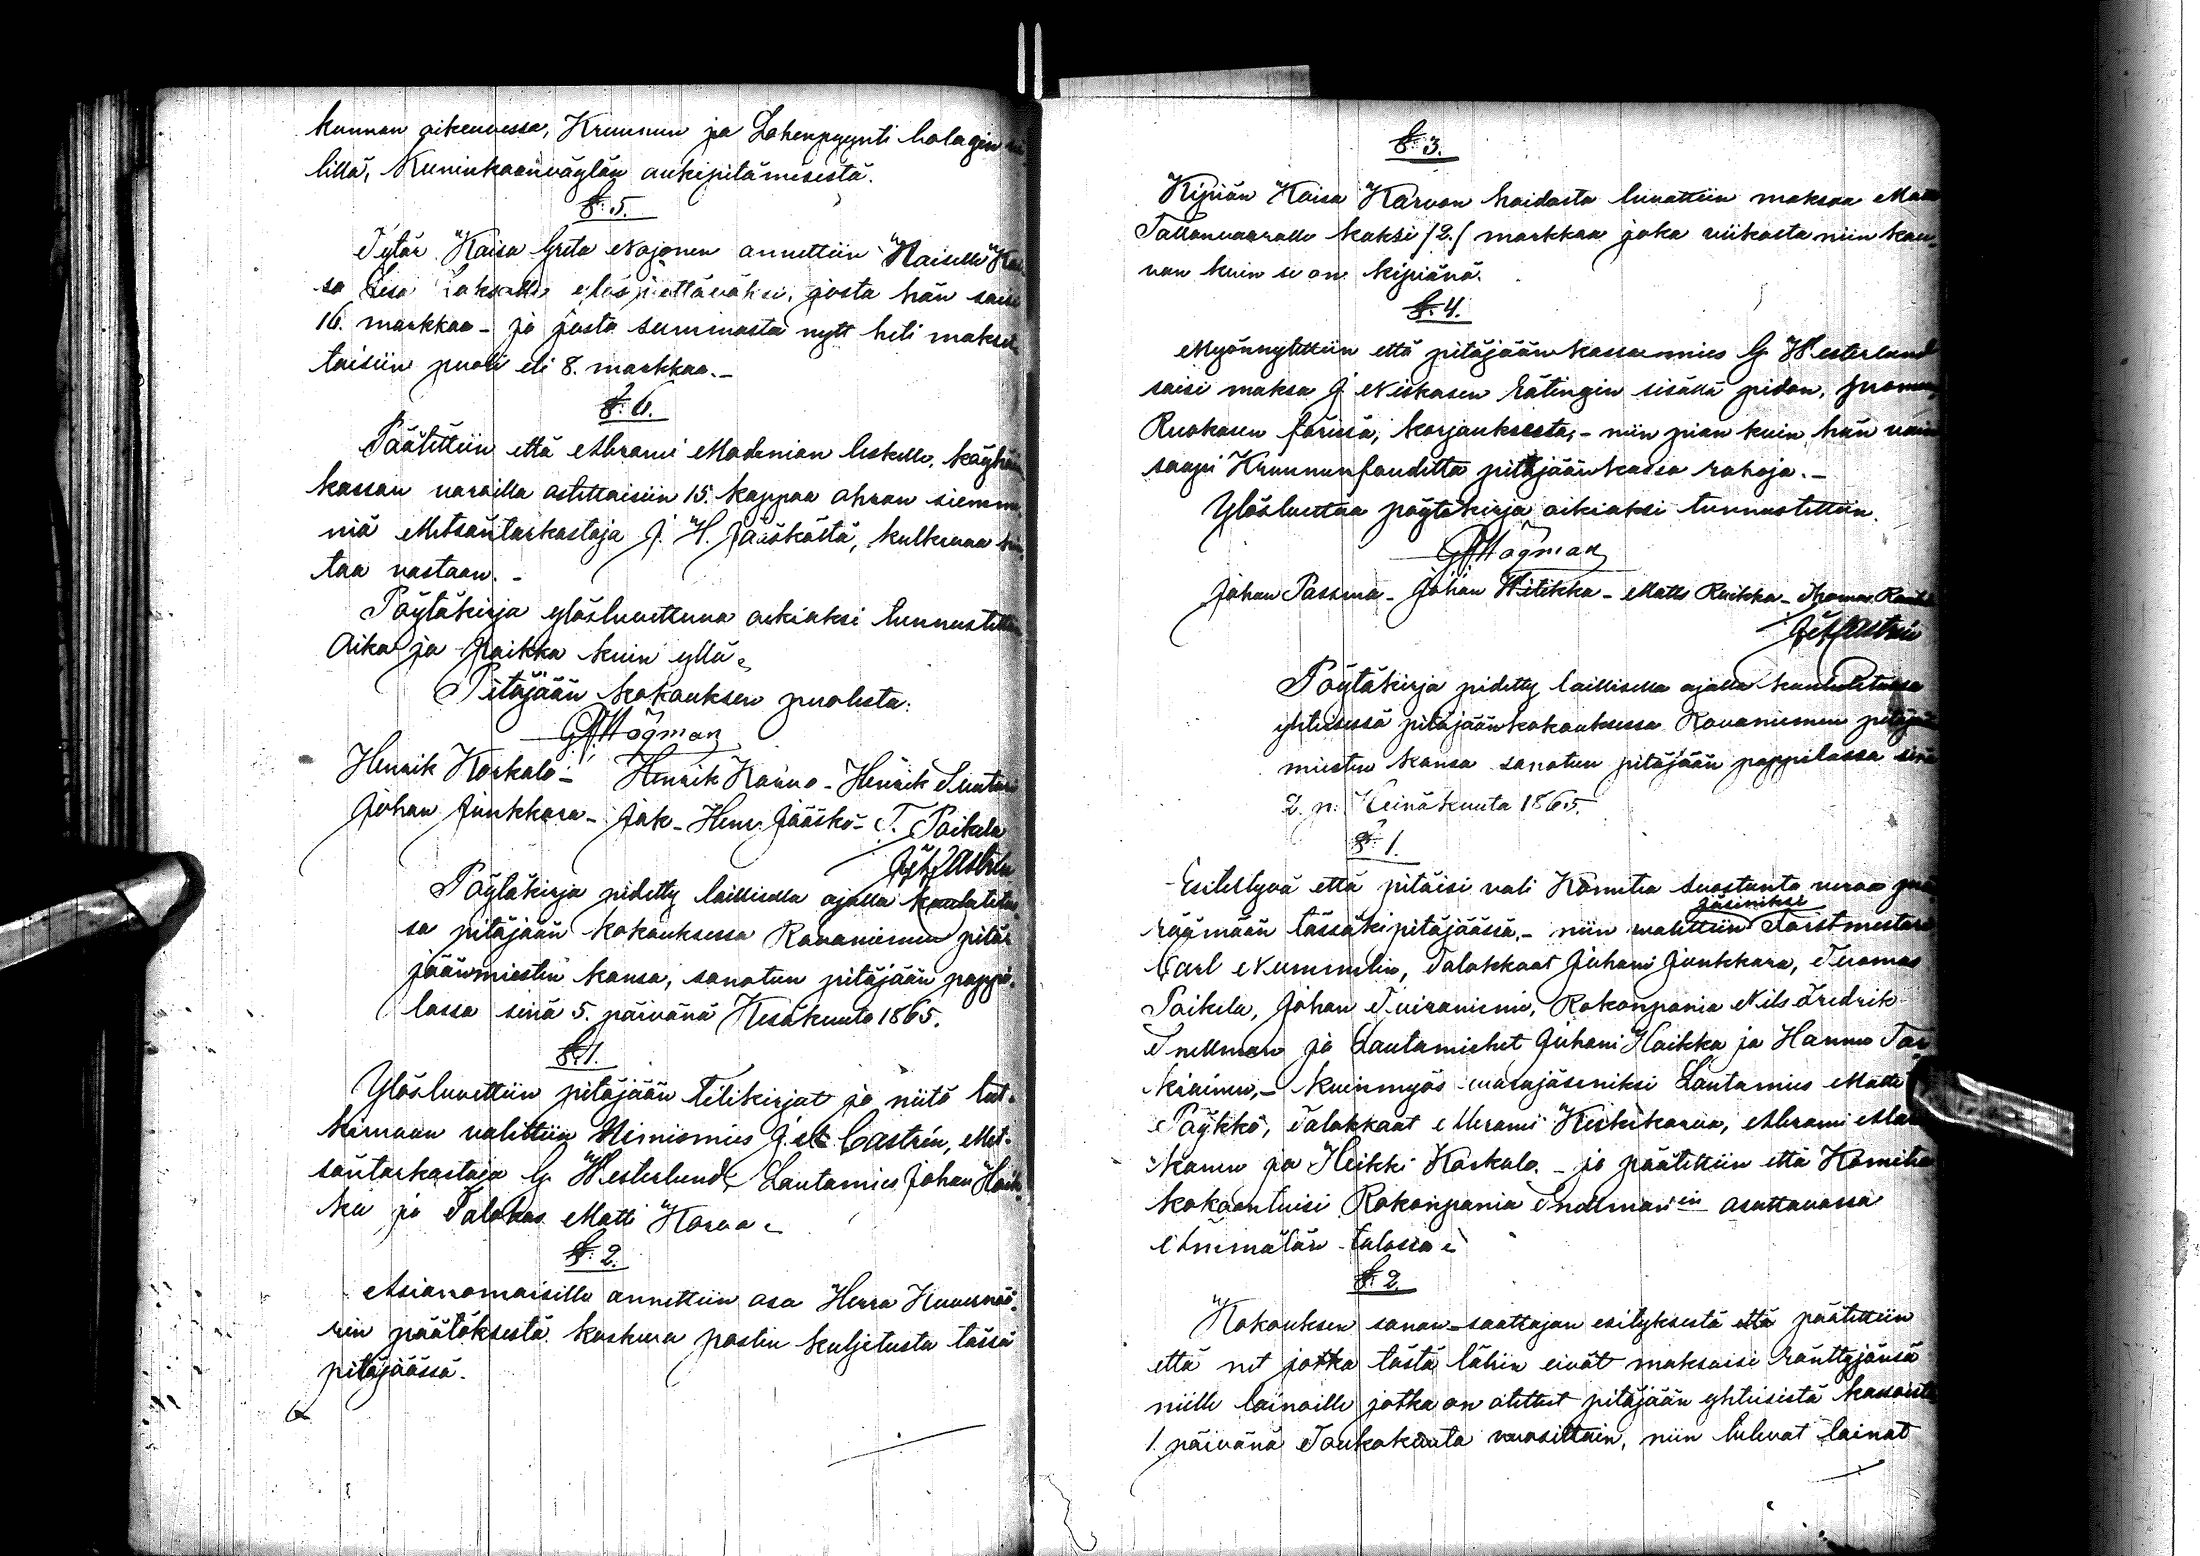 kunnan oikeudessa, Kruunun ja Lohenpyynti bolagin
lillä, Kuninkaanväylän aukipitämisestä.
§. 5.
Tytär Kaisa Greta Nojonen annettiin Naiselle
sa Lisa elospiettäväksi, josta hän saisi
16. markkaa - ja josta summasta nytt heti makset
taisiin puoli eli 8. markkaa. -
§. 6.
Päätettiin että Abrami Modenian leskelle, käyhäin
kassan varoilla ostettaisiin 15. kappaa ohran siemen
niä Metsäntarkastaja J. H. Jääsköltä, kulkevaa hin
taa vastaan. -
Pöytäkirja ylösluettuna oikiaksi tunnustettiin
Aika ja paikka kuin yllä.
Pitäjään kokouksen puolesta:
G. Högman
Henrik Korkalo - Henrik Karvo - Henrik Suutari
Johan Junkkara - Jak. Henr. Jääskö - T. Poikela
Castrén
Pöytäkirja pidetty laillisella ajalla kuulutetus
sa pitäjään kokouksessa Rovaniemen pitä
jäänmiesten kansa, sanotun pitäjään pappi
lassa sinä 5. päivänä Kesäkuuta 1865.
§. 1.
Ylösluvettiin pitäjään tilikirjat ja niitä tut-
kimaan valittiin Nimismies J. A. Castrén, Met-
säntarkastaja G. Westerlund, Lautamies Johan Haik
ka ja Talokas Matti Korva.
§. 2.
Asianomaisille annettiin osa Herra Kuvernöö-
rin päätöksestä koskeva postin kuljetusta tässä
pitäjäässä.
§. 3.
Kipiän Kaisa Karvon hoidosta luvattiin maksaa
Tallonvaaralle kaksi /2./ markkaa joka viikosta niin kau-
van kuin se on kipiänä.
§. 4.
Myönnytettiin että pitäjään kassanmies G. Westerlund
saisi maksa J. Niskasen rätingin sisällä pidon,
Ruokasen färissä, korjauksesta, - niin pian kuin hän vain
saapi Kruununfouditta pitäjäänkassa rahoja. -
Ylösluettua pöytäkirja oikiaksi tunnustettiin.
G. Högman
Johan Passma - Johan Hitikka - Matts Ruikka - Thomas
Castrén
Pöytäkirja pidetty laillisella ajalla kuulutetussa
yhteisessä pitäjäänkokouksessa Rovaniemen pitäjään
miesten kansa sanotun pitäjään pappilassa sinä
2. p: Heinäkuuta 1865.
§. 1.
Esitettyvä että pitäisi vali Komitea suostunta veroa
räämään tässäki pitäjäässä, - niin valittiin jäseniksi Forstmestari
Carl Nummelin, Talokkaat Juhani Junkkara, Tuomas
Poikela, Johan Tuiraniemi, Kokonpania Nils Fredrik
Snellman ja Lautamiehet Juhani Haikka ja Hannu Tar
kiainen, - kuinmyös varajäseniksi Lautamies Matti
Pöykkö, Talokkaat Abrami Keskikorva, Abrami
konen ja Heikki Korkalo. - ja päätettiin että Komitea
kokoontuisi Kokonpania Snellman'in asuttavassa
Ämmälän talossa.
§. 2.
Kokouksen sanan-saattajan esityksestä että päätettiin
että net jotka tästä lähin eivät maksaisi ränttyjänsä
niille lainoille jotka on otettut pitäjään yhteisistä kassoista
1. päivänä Toukokuuta vuosittain, niin tulevat lainat